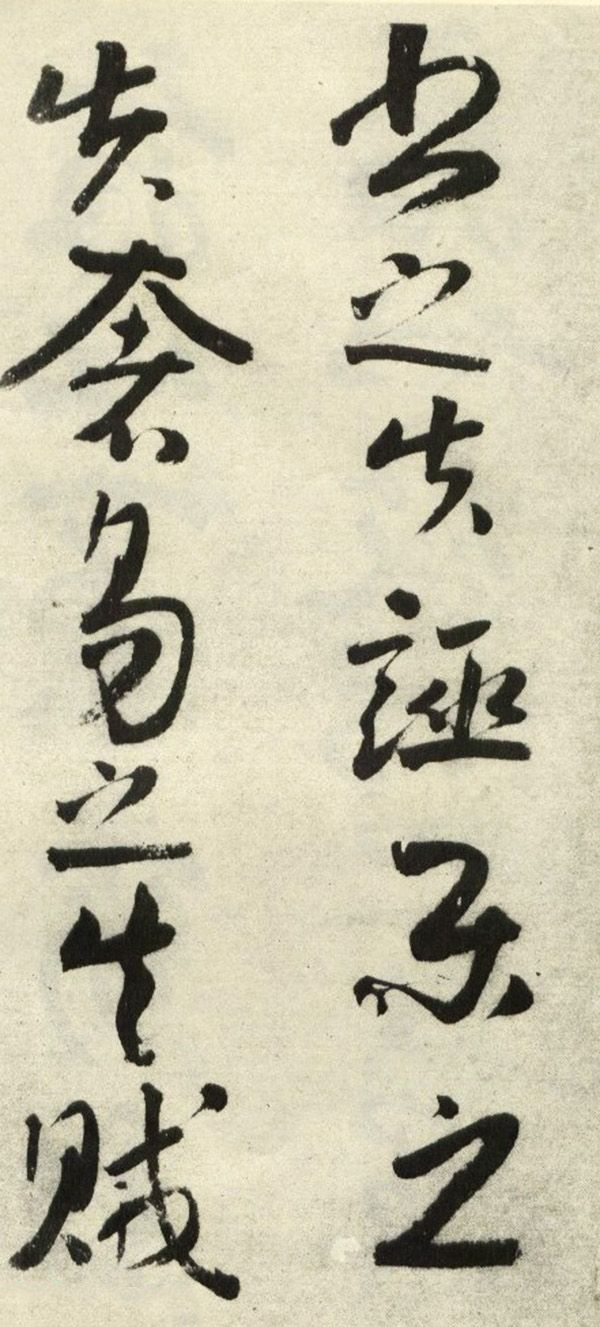 書之失誣樂之
失奢易之失賊